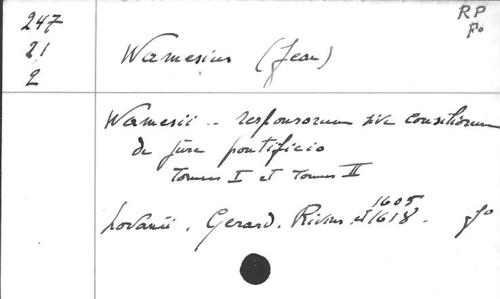 247
21
2
RP
fo
Wamesius (Jean)
Wamesii - responsorum sive consiliorum
de jure pontificio
Tomus I et Tomus II
Lovanii, Gerard. Rivius. et 1605 1618. fo